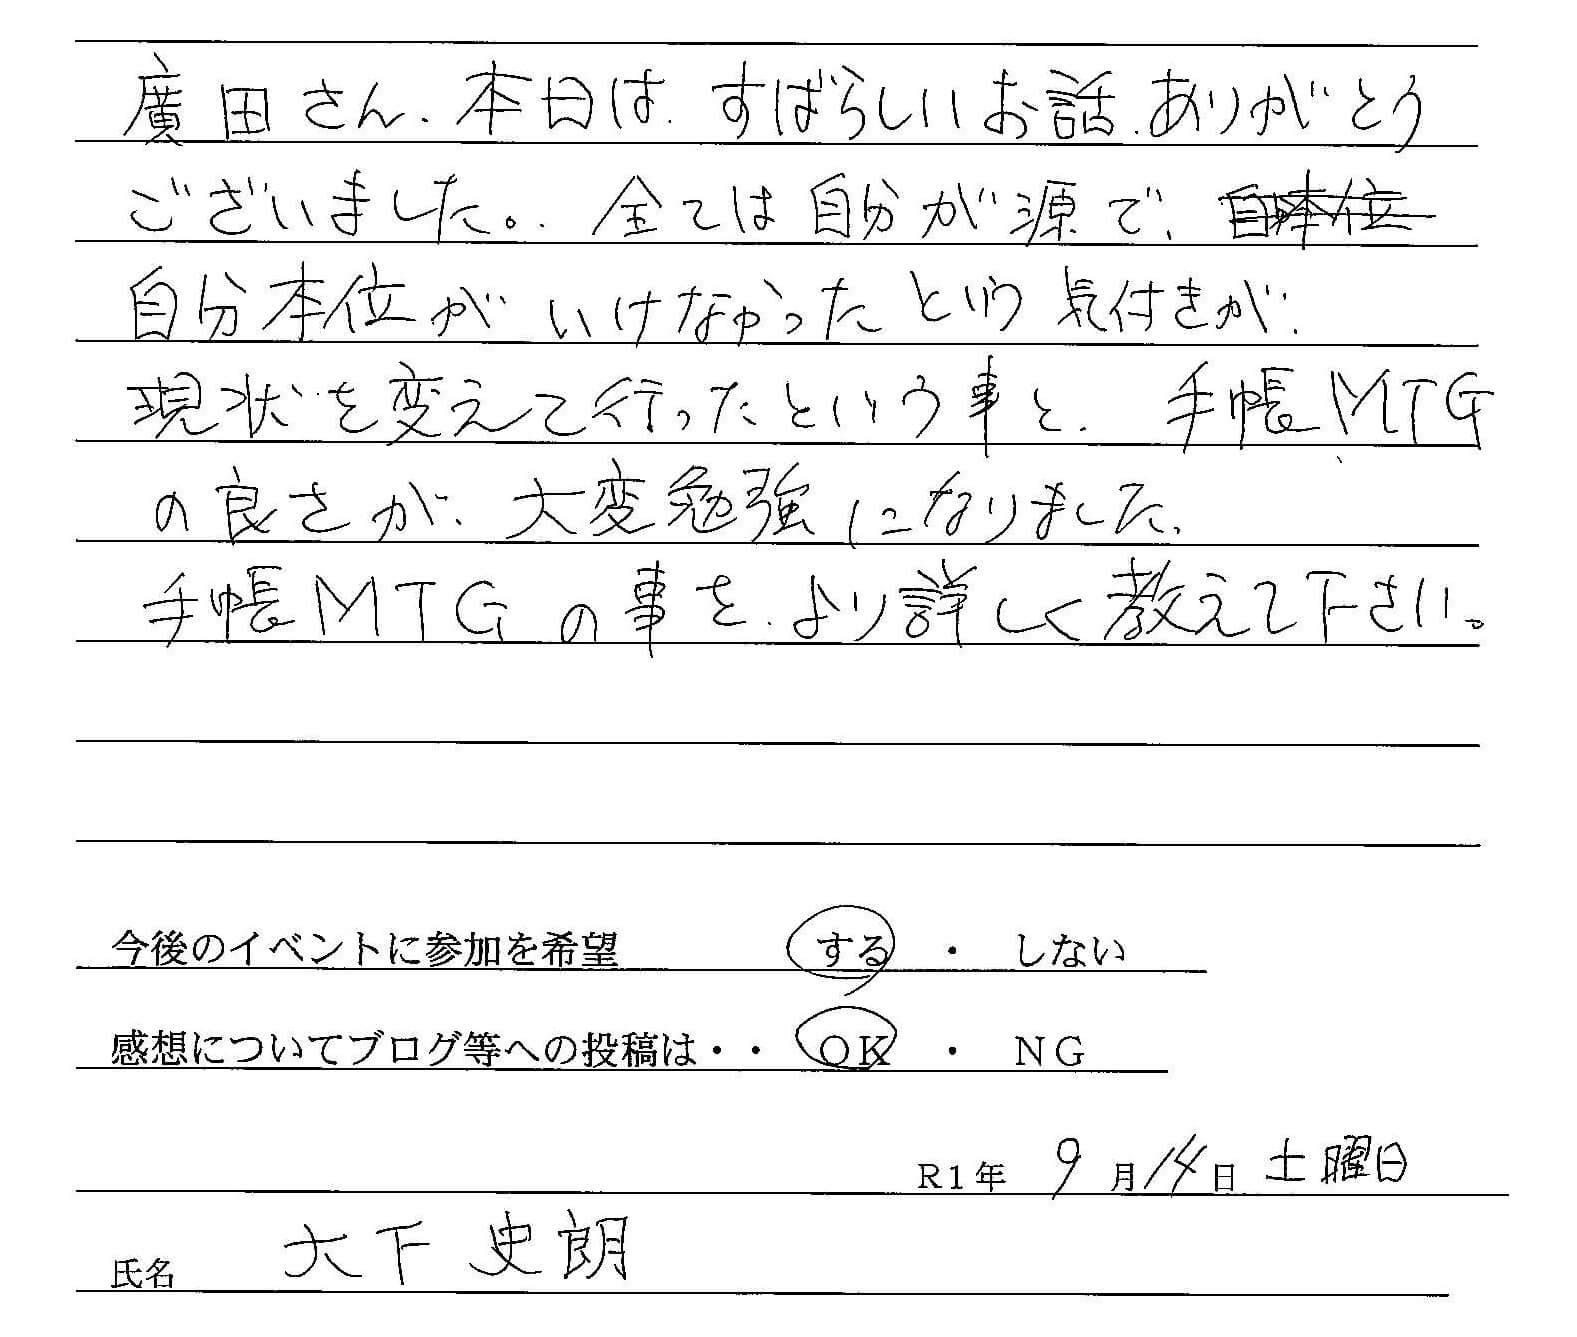 廣田さん、本日は、すばらしいお話、ありがとう
ございました。全ては自分が源で、
自分本位がいけなかったという気付きが、
現状を変えて行ったという事と、手帳MTG
の良さが、大変勉強になりました、
手帳MTGの事を、より詳しく教えて下さい。
今後のイベントに参加を希望 する ・ しない
感想についてブログ等への投稿は・・ OK ・ NG
R1年 9月14日 土曜日
氏名 大下 史朗